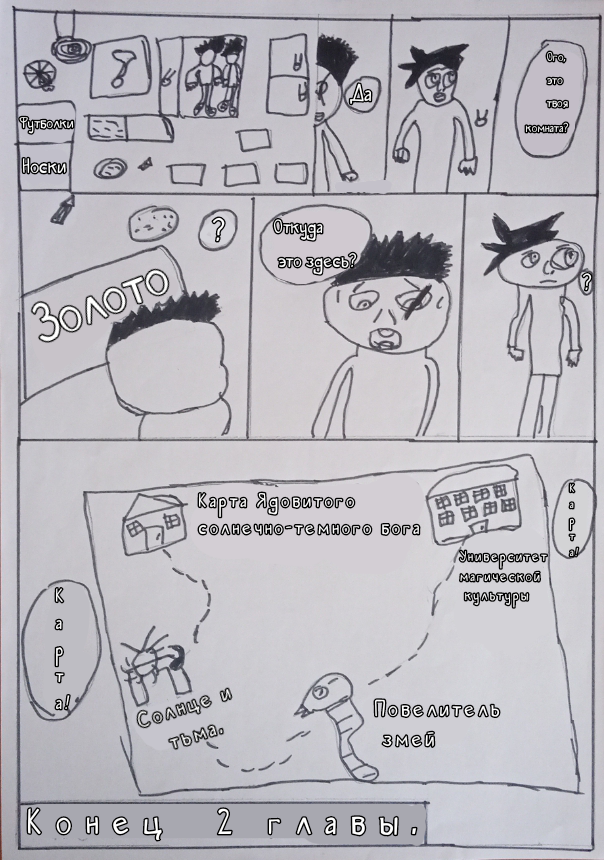 Футболки
Носки
?
Да
Ого,
это
твоя
комната?
Золото
?
Откуда
это здесь?
?
Карта Ядовитого
солнечно-темного бога
Университет
магической
культуры
К
а
р
т
а!
К
а
р
т
а!
Солнце и
тьма.
Повелитель
змей
Конец 2 главы.